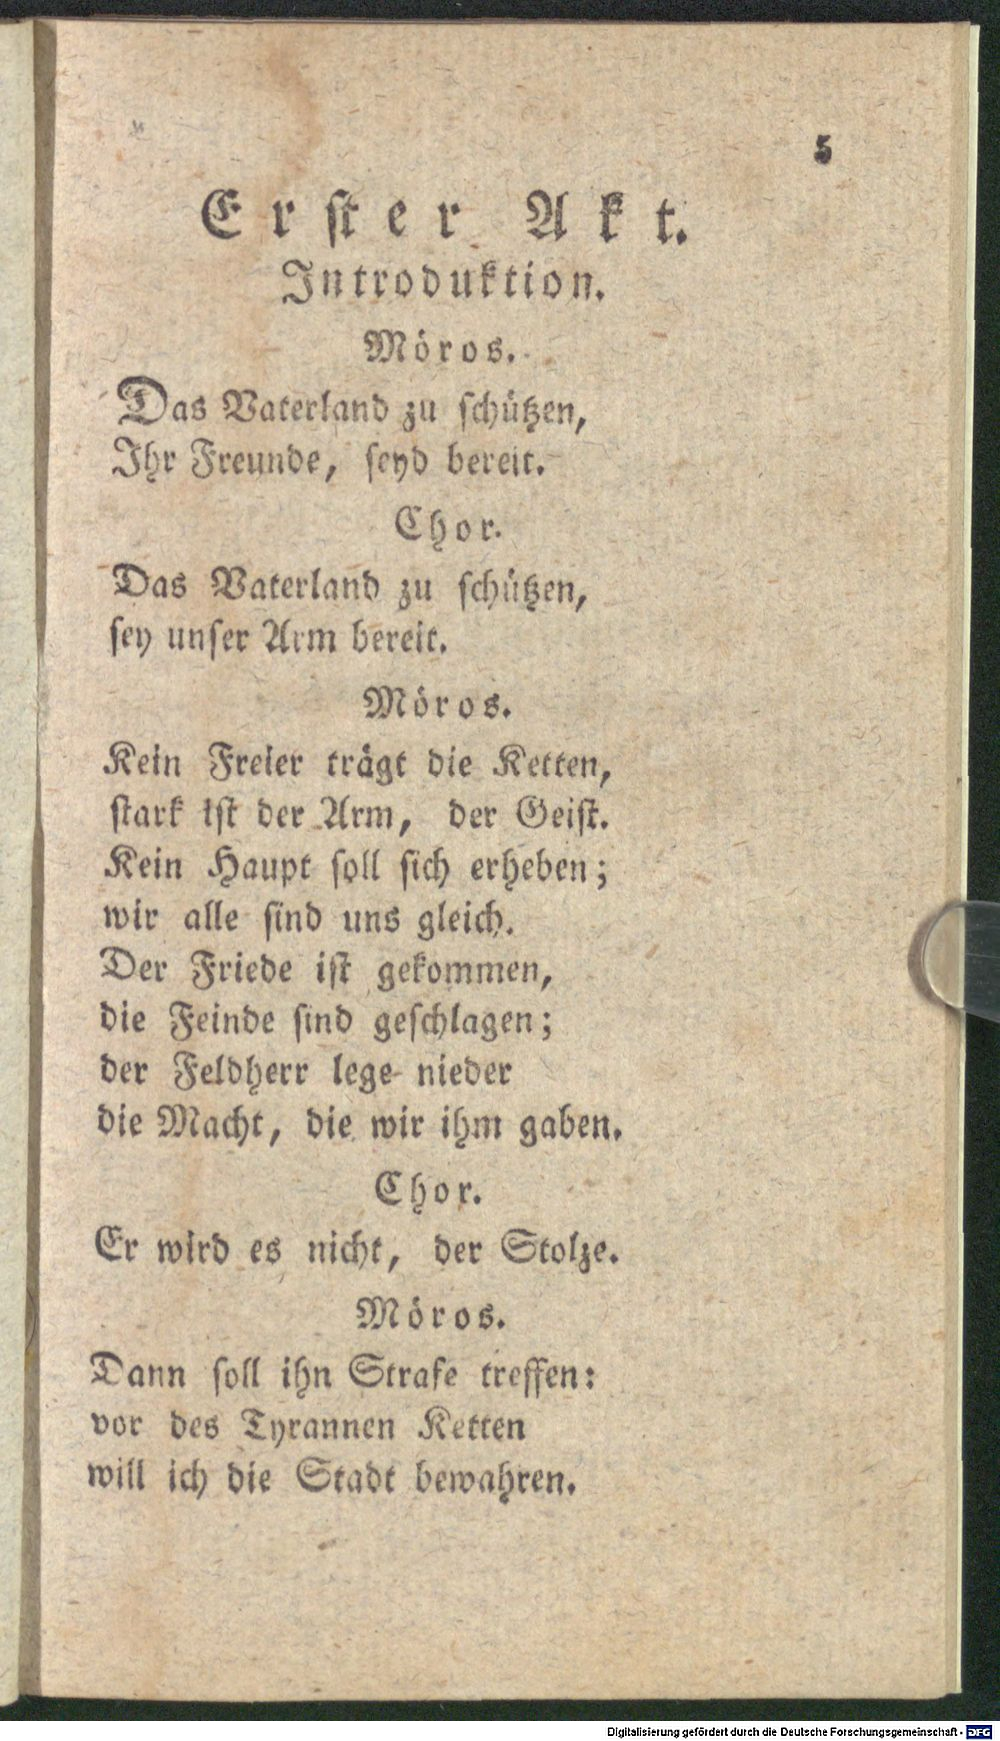 5
Erster Akt.
Introduktion.
Möros.
Das Vaterland zu schützen,
Ihr Freunde, seyd bereit.
Chor.
Das Vaterland zu schützen,
sey unser Arm bereit.
Möros.
Kein Freier trägt die Ketten,
stark ist der Arm, der Geist.
Kein Haupt soll sich erheben;
wir alle sind uns gleich.
Der Friede ist gekommen,
die Feinde sind geschlagen;
der Feldherr lege nieder
die Macht, die wir ihm gaben.
Chor.
Er wird es nicht, der Stolze.
Möros.
Dann soll ihn Strafe treffen:
vor des Tyrannen Ketten
will ich die Stadt bewahren.
Digitalisierung gefördert durch die Deutsche Forschungsgemeinschaft - DFG